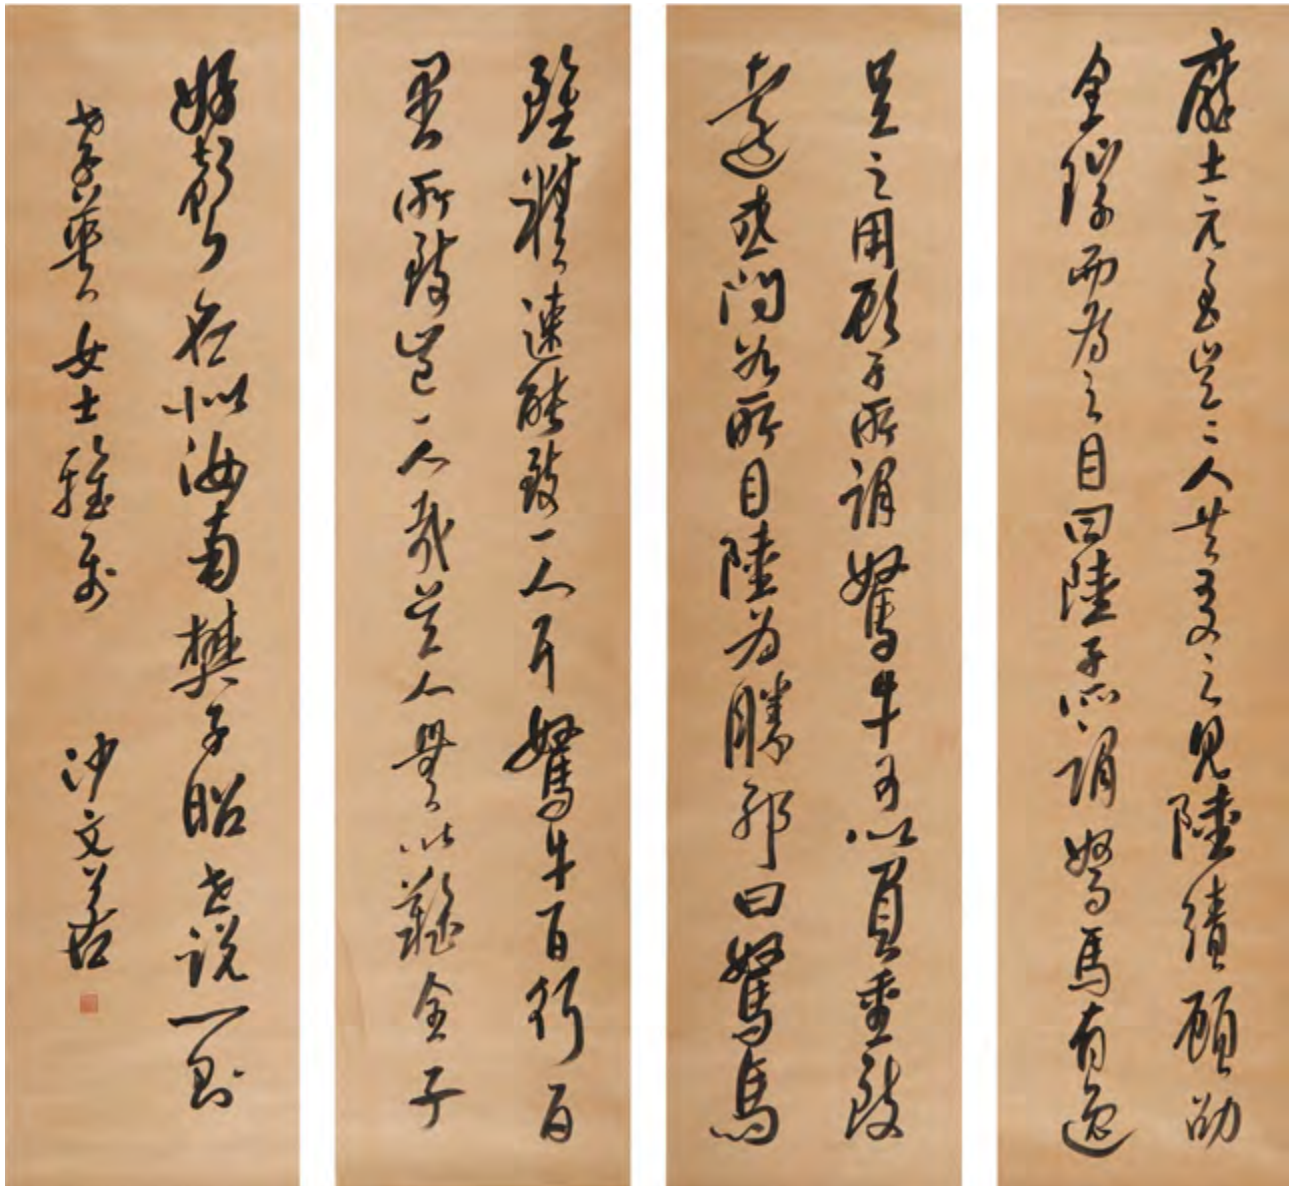 龐士元至吴〻人並友之見陸績顧劭
全琮而為之目曰陸子所謂駑馬有逸
足之用顧子所謂駑牛可以負重致
遠或問如所目陸為勝邪曰駑馬
雖精速能致一人耳駑牛一日行百
里所致豈一人哉吴人無以難全子
好聲名似汝南樊子昭世说一則
女士雅屬 沙文若